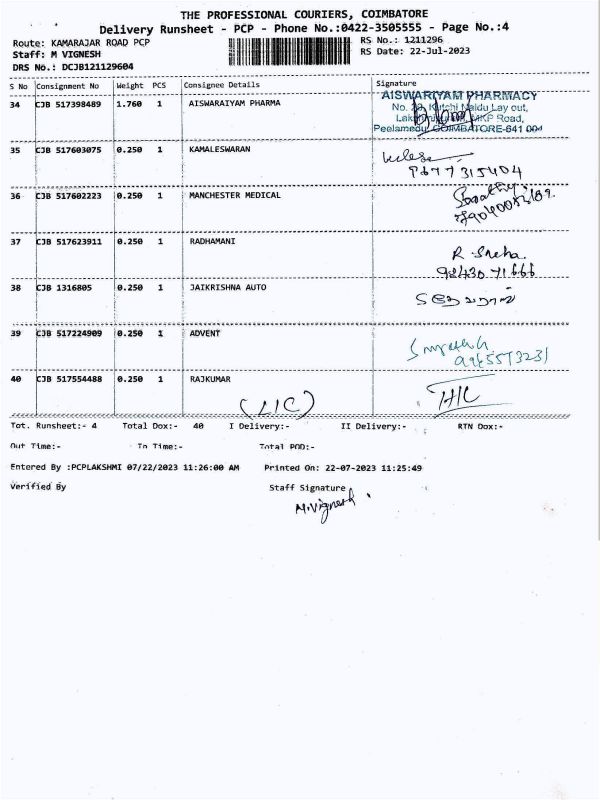 THE PROFESSIONAL COURIERS, COIMBATORE
Delivery Runsheet - PCP - Phone No.:0422-3505555 - Page No.:4
Route: KAMARAJAR ROAD PCP
RS No.: 1211296
Staff: M VIGNESH
RS Date: 22-Jul-2023
DRS No.: DCJB121129604
S No Consignment No Weight PCS Consignee Details Signature
34 CJB 517398489 1.760 1 AISWARAIYAM PHARMA
AISWARIYAM PHARMACY
Naidu Lay out,
MKP Road,
Peelamedu, COIMBATORE-641 004
35 CJB 517603075 0.250 1 KAMALESWARAN
9677315404
36 CJB 517602223 0.250 1 MANCHESTER MEDICAL
37 CJB 517623911 0.250 1 RADHAMANI
R. Sneha.
9843071666
38 CJB 1316805 0.250 1 JAIKRISHNA AUTO
39 CJB 517224909 0.250 1 ADVENT
40 CJB 517554488 0.250 1 RAJKUMAR
(LIC)
Tot. Runsheet:- 4 Total Dox:- 40 I Delivery:- II Delivery:- RTN Dox:-
Out Time:- In Time:- Total POD:-
Entered By :PCPLAKSHMI 07/22/2023 11:26:00 AM Printed On: 22-07-2023 11:25:49
Verified By Staff Signature
M.Vignesh